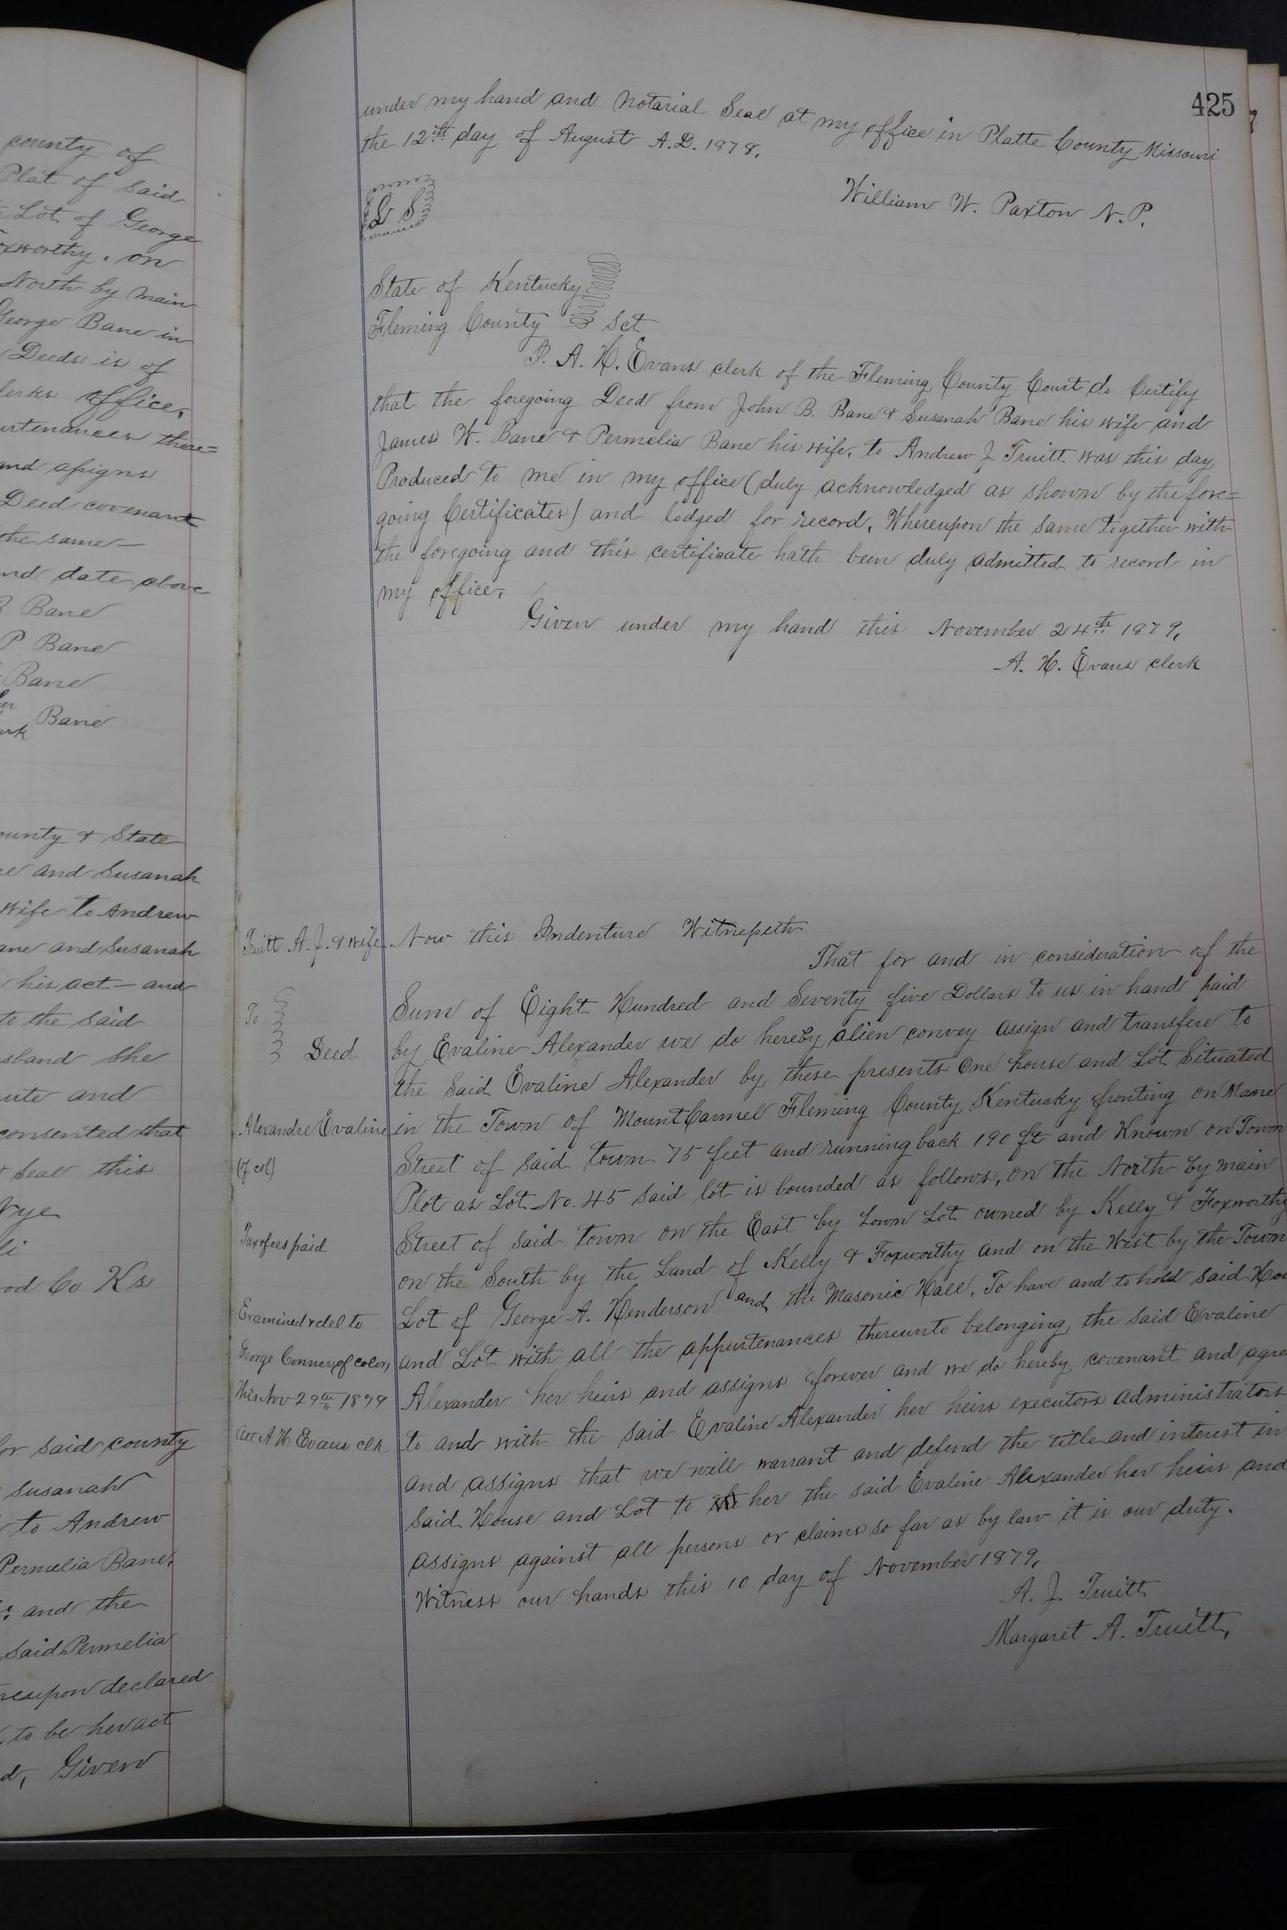 county of
Plat of said
Lot of George
Foxworthy. on
North by Main
George Bane in
Deeds is of
clerks office,
appurtenances there=
and assigns
Deed covenant
the same—
and date above
B Bane
P Bane
Bane
her
Bane
mark
county & State
and Susanah
wife to Andrew
Bane and Susanah
his act— and
to the said
husband she
and
consented that
& seal this
Nye
Co Ks
for said county
Susanah
to Andrew
Permelia Bane,
and the
said Permelia
thereupon declared
, to be her act
Given
425
under my hand and Notarial Seal at my office in Platte County Missouri
the 12th day of August A.D. 1878.
L S
William W. Paxton N.P.
State of Kentucky
Fleming County Sct
I. A. H. Evans clerk of the Fleming County Court do Certify
that the foregoing Deed from John B. Bane & Susanah Bane his wife and
James W. Bane & Permelia Bane his wife, to Andrew J Truitt was this day
Produced to me in my office (duly acknowledged as shown by the fore=
going Certificates) and lodged for record, Whereupon the same together with
the foregoing and this certificate hath been duly admitted to record in
my office,
Given under my hand this November 24th 1879,
A. H. Evans clerk
Truitt A. J. & wife
To
Deed
Alexandre Evaline
(of col)
Tax & fees paid
Examined & del to
George Conner, of color,
this Nov 29th 1879
Att A H Evans clk
Now this Indenture Witnesseth
That for and in consideration of the
Sum of Eight Hundred and Seventy five Dollars to us in hand paid
by Evaline Alexander we do hereby alien convey assign and transfere to
the Said Evaline Alexander by these presents One house and Lot Situated
in the Town of Mount Carmel Fleming County Kentucky fronting on Mane
Street of said town 75 feet and running back 190 ft and Known on Town
Plot as Lot No. 45 said lot is bounded as follows, on the North by main
Street of said town on the East by town Lot owned by Kelly & Foxworthy
on the South by the Land of Kelly & Foxworthy and on the West by the Town
Lot of George A. Henderson and the Masonic Hall, To have and to hold said Hou
and Lot with all the appurtenances thereunto belonging the said Evaline
Alexander her heirs and assigns forever and we do hereby covenant and agree
to and with the said Evaline Alexander her heirs executors administrators
and assigns that we will warrant and defend the title and interest in
said House and Lot to her the said Evaline Alexander her heirs and
assigns against all persons or claims so far as by law it is our duty.
Witness our hands this 10 day of November 1879,
A. J. Truitt
Margaret A. Truitt,